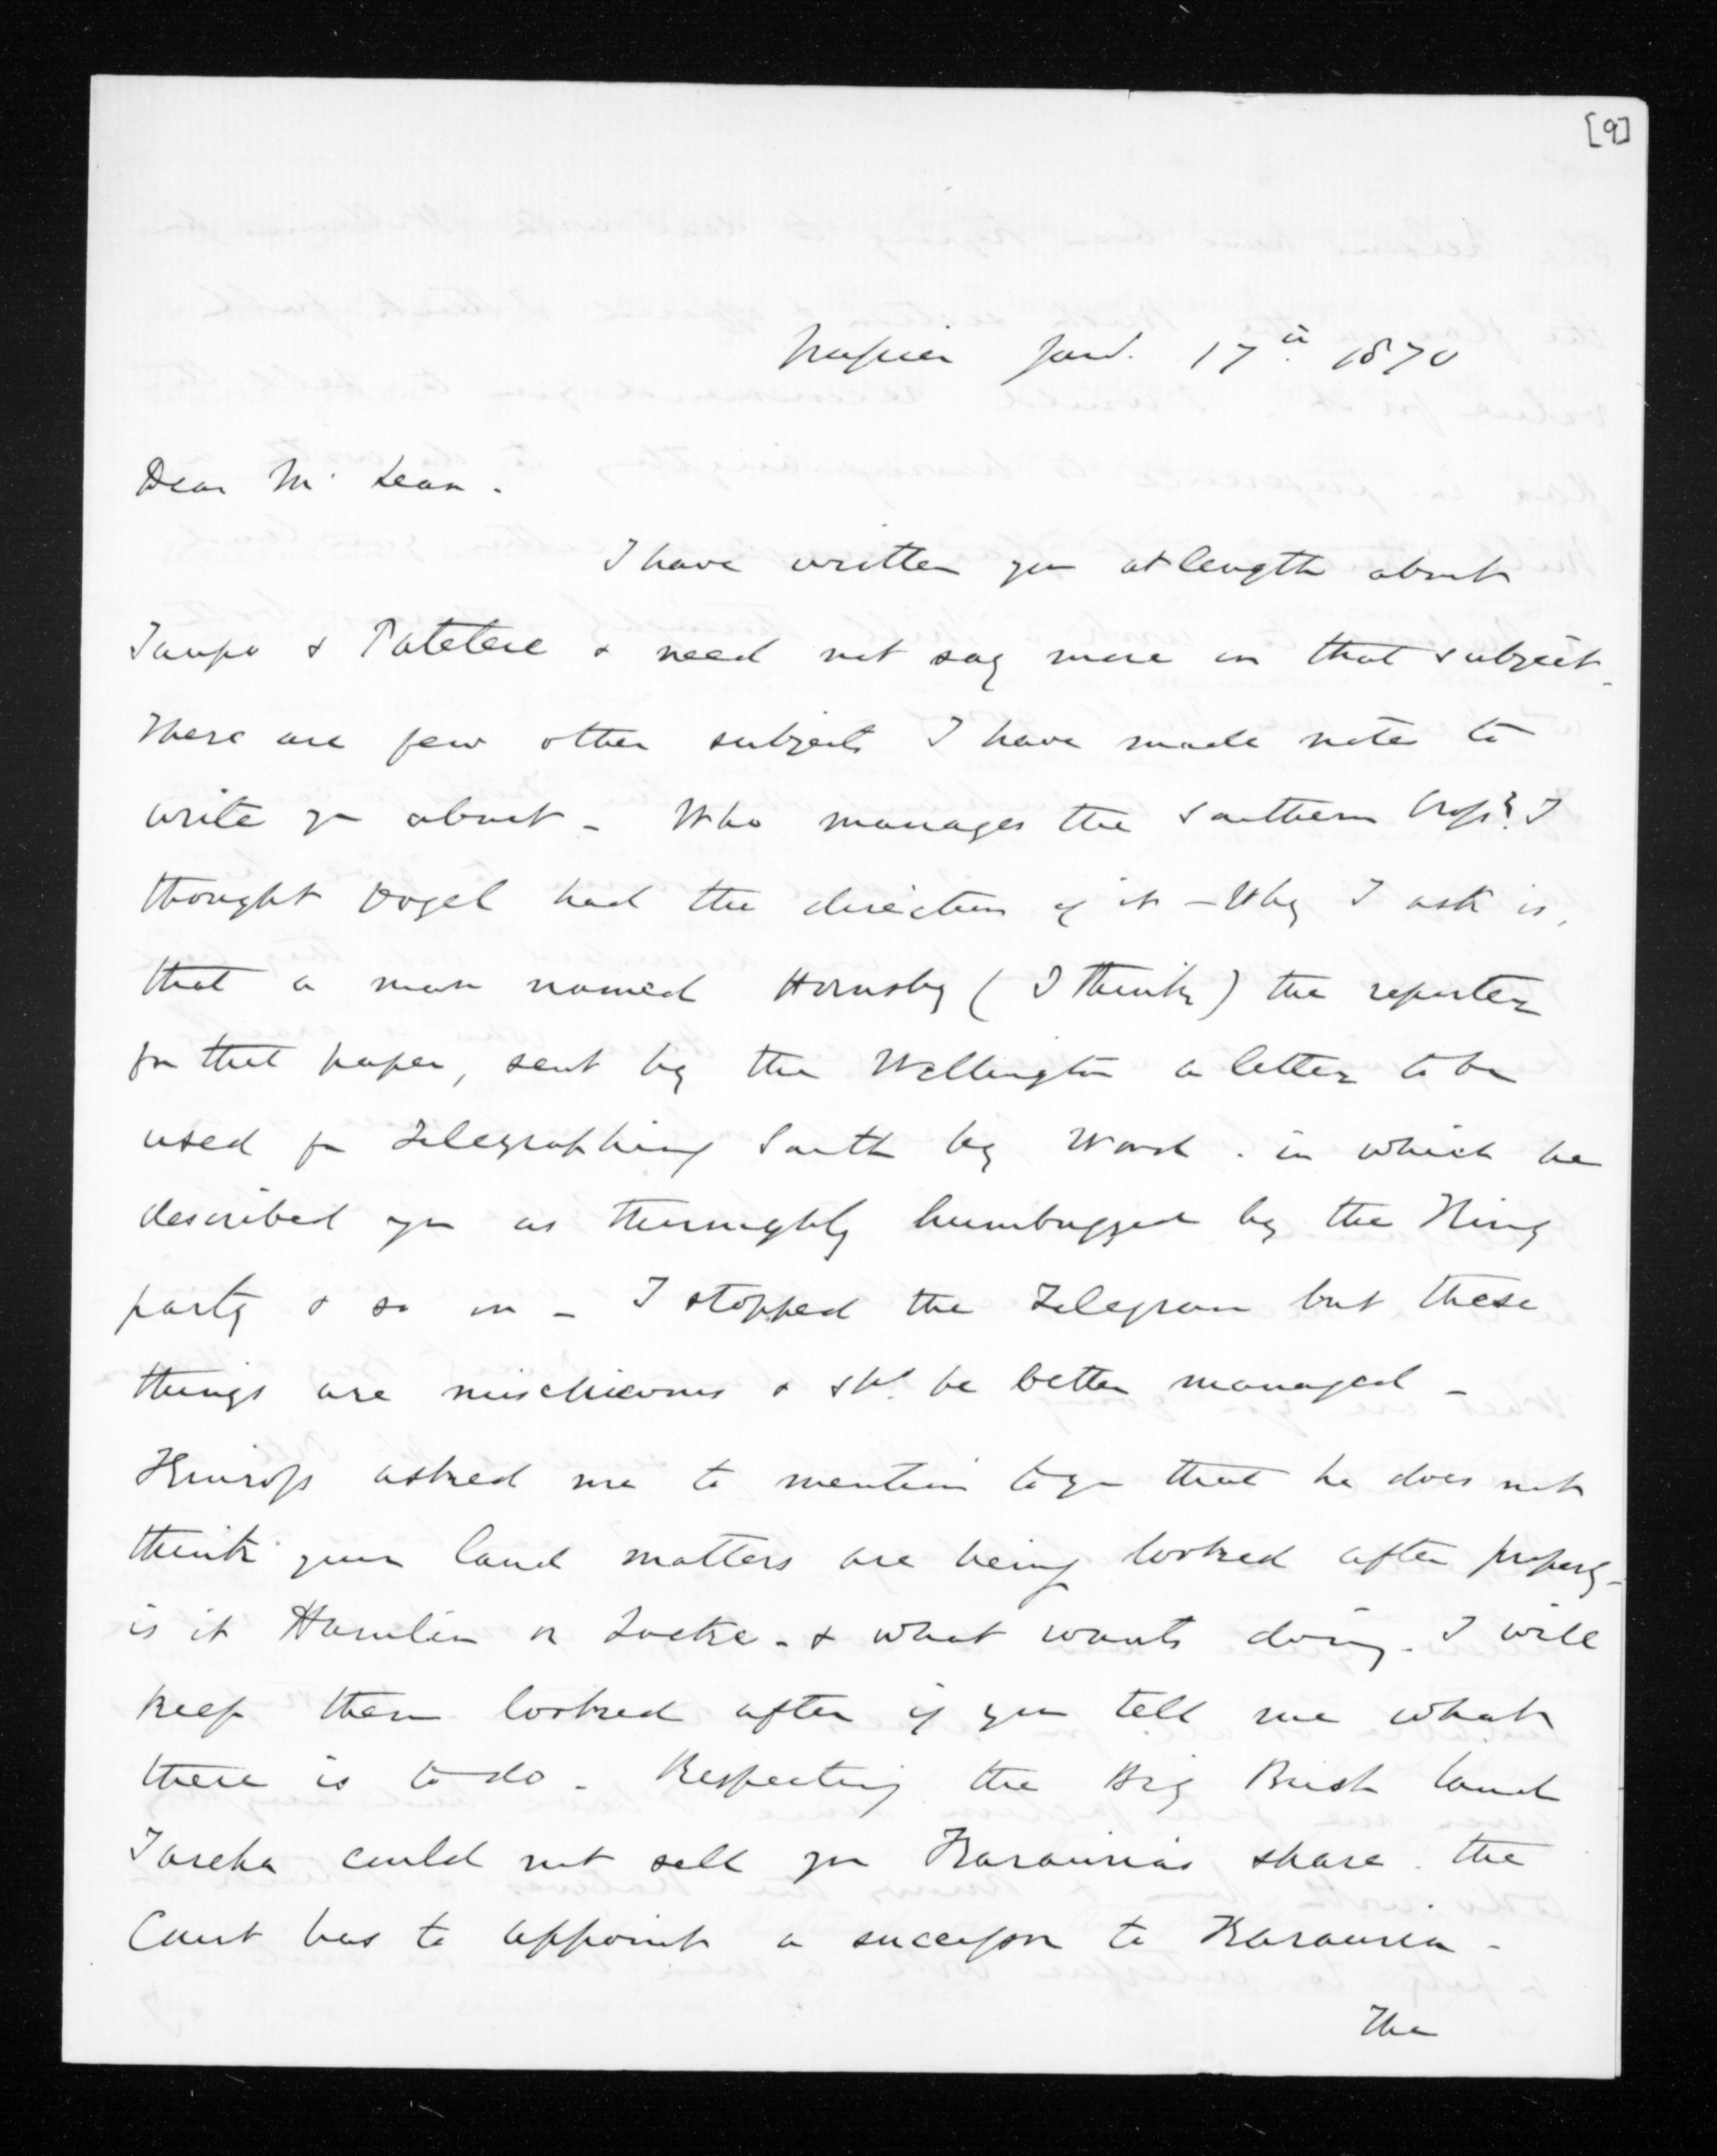 [9]
Napier Jany. 17th. 1870
Dear McLean.
I have written you at length about
Taupo & Patetere & need not say more on that subject.
There are few other subjects I have made notes to
write you about - Who manages the Southern Cross? I
thought Vogel had the direction of it - Why I ask is,
that a man named Hornsby (I think) the reporter
for that paper, sent by the Wellington a letter to be
used for Telegraphing South by Ward. in which he
described you as thoroughly humbugged by the King
party & so on - I stopped the Telegram but these
things are mischievous & shd. be better managed -
Kinross asked me to mention to you that he does not
think your land matters are being looked after properly -
is it Hamlin or Locke - & what wants doing. I will
keep them looked after if you tell me what
there is to do - Respecting the Big Bush land
Tareha could not sell you Karauria's share. the
Court has to appoint a successor to Karauria -
The